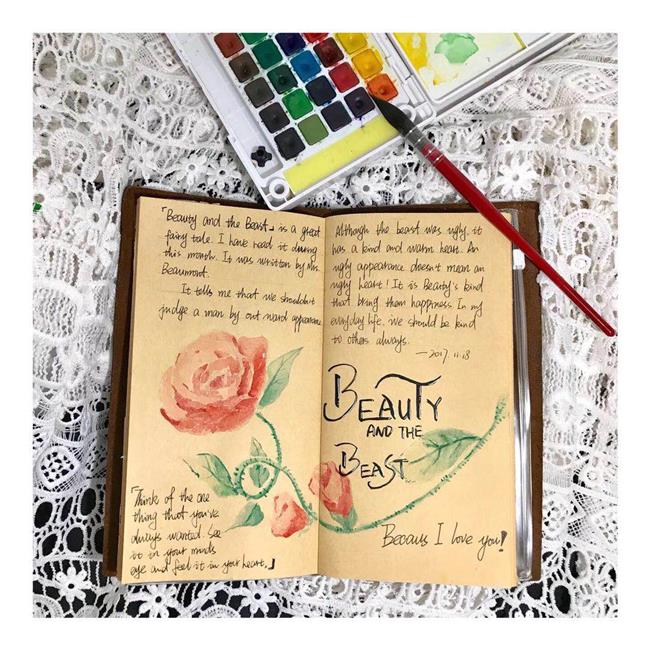 「Beauty and the Beast」 is a great
fairy tale. I have read it during
this month. It was written by Mrs.
Beaumont.
It tells me that we shouldn't
judge a man by out ward appearance
「Think of the one
thing that you've
always wanted. See
it in your minds
eye and feel it in your heart.」
Although the beast was ugly, it
has a kind and warm heart. An
ugly appearance doesn't mean an
ugly heart! It is Beauty's kind
that bring them happiness. In my
everyday life, we should be kind
to others always.
—2017.11.18
BEAUTY
AND THE
BEAST
Becaus I love you!